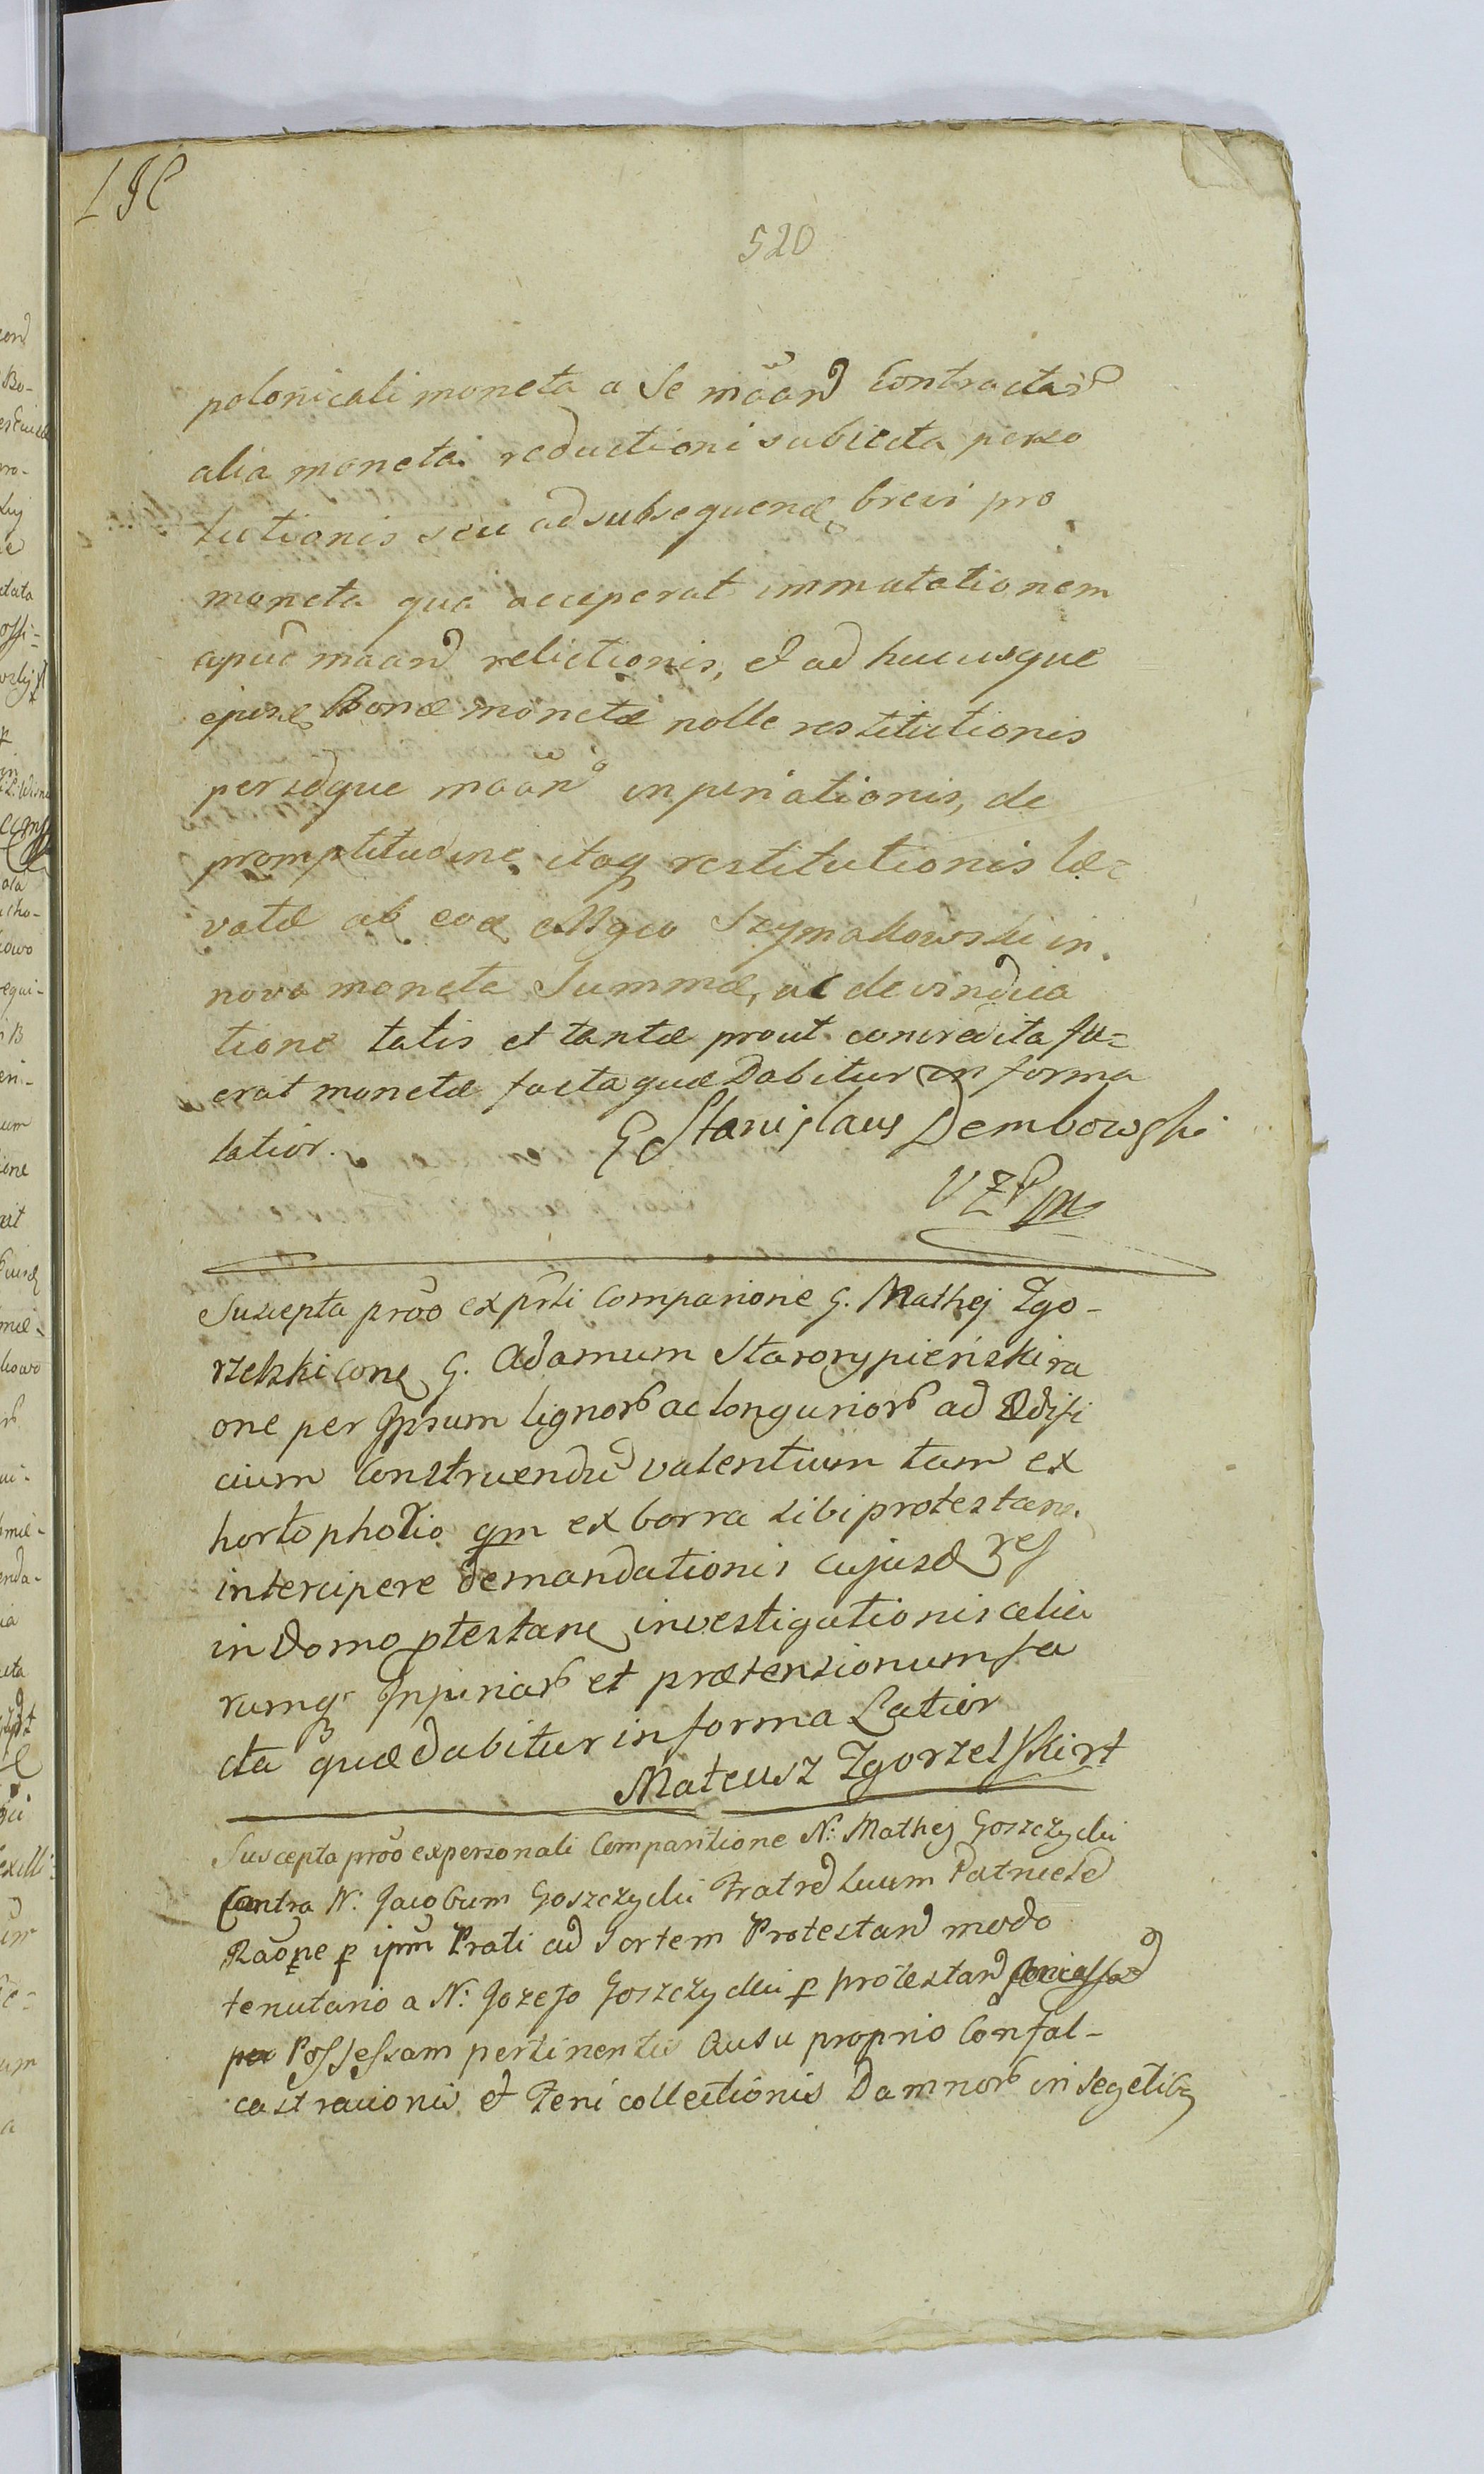 LIC
520
polonicali moneta a Se mãand Contractas
alia moneta reductioni subiecta perso
lutionis seu ad subsequend brevi pro
moneta qua acceperat immutationem
apud maand relictionis, et ad hucusque
ejusd Bonæ monetæ nolle restitutionis
persedque mãand injuriationis, de
promptitudine itaq restitutionis læ=
vatæ ab eod Mgco Szymakowski in
nova moneta Summæ, ac de vindica
tione talis et tantæ prout concredita fu=
erat monetæ facta quæ Dabitur in forma
latior. G Stanislaus Dembowski
VZPm
Suscepta prõo ex psli Comparione G. Mathej Zgo-
rzelski con G. Adamum Starorypienski ra
one per Ipsum lignor ac longurior ad Ædifi
cium Construendu valentium tam ex
horto pholio qm ex borra sibi protestan
intercipere demandationis cujusd rej
in Domo ptestan investigationis alia
rumq Injuriar et prætensionum fa
cta quæ dabitur in forma Latior
Mateusz Zgorzelski rt
Suscepta prõo ex personali Comparitione N: Mathej Goszczycki
Contra N: Jacobum Goszczycki Fratred suum Patrueled
Raõne p ipm Prati ad Sortem Protestand modo
tenutario a N: Jozefo Goszczycki p protestand
Possessam pertinentis Ausu proprio Confal-
castracionis et Feni collectionis Damnor in segetibq